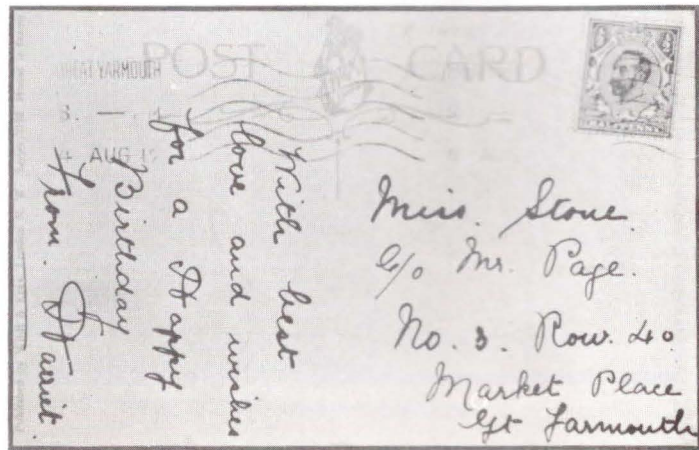 POST CARD
GREAT YARMOUTH
AUG
With best
love and wishes
for a Happy
Birthday
From Harriet.
Miss. Stone.
c/o Mr. Page.
No. 3. Row. 40
Market Place
Gt Yarmouth